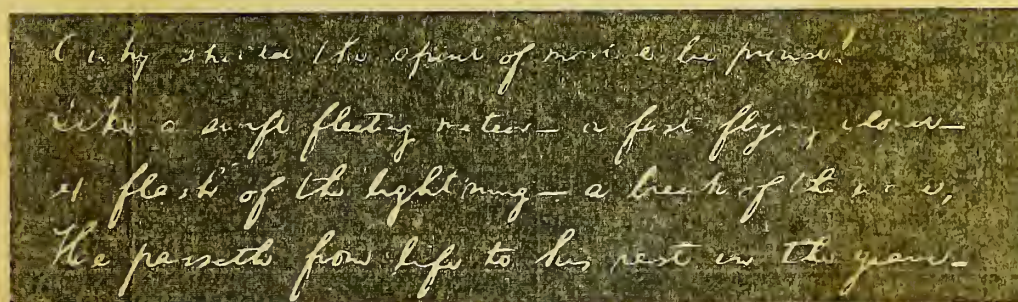 O why should the spirit of mortal be proud!
Like a swift fleeting meteor — a fast flying cloud —
A flash of the lightning — a break of the wave,
He passeth from life to his rest in the grave —